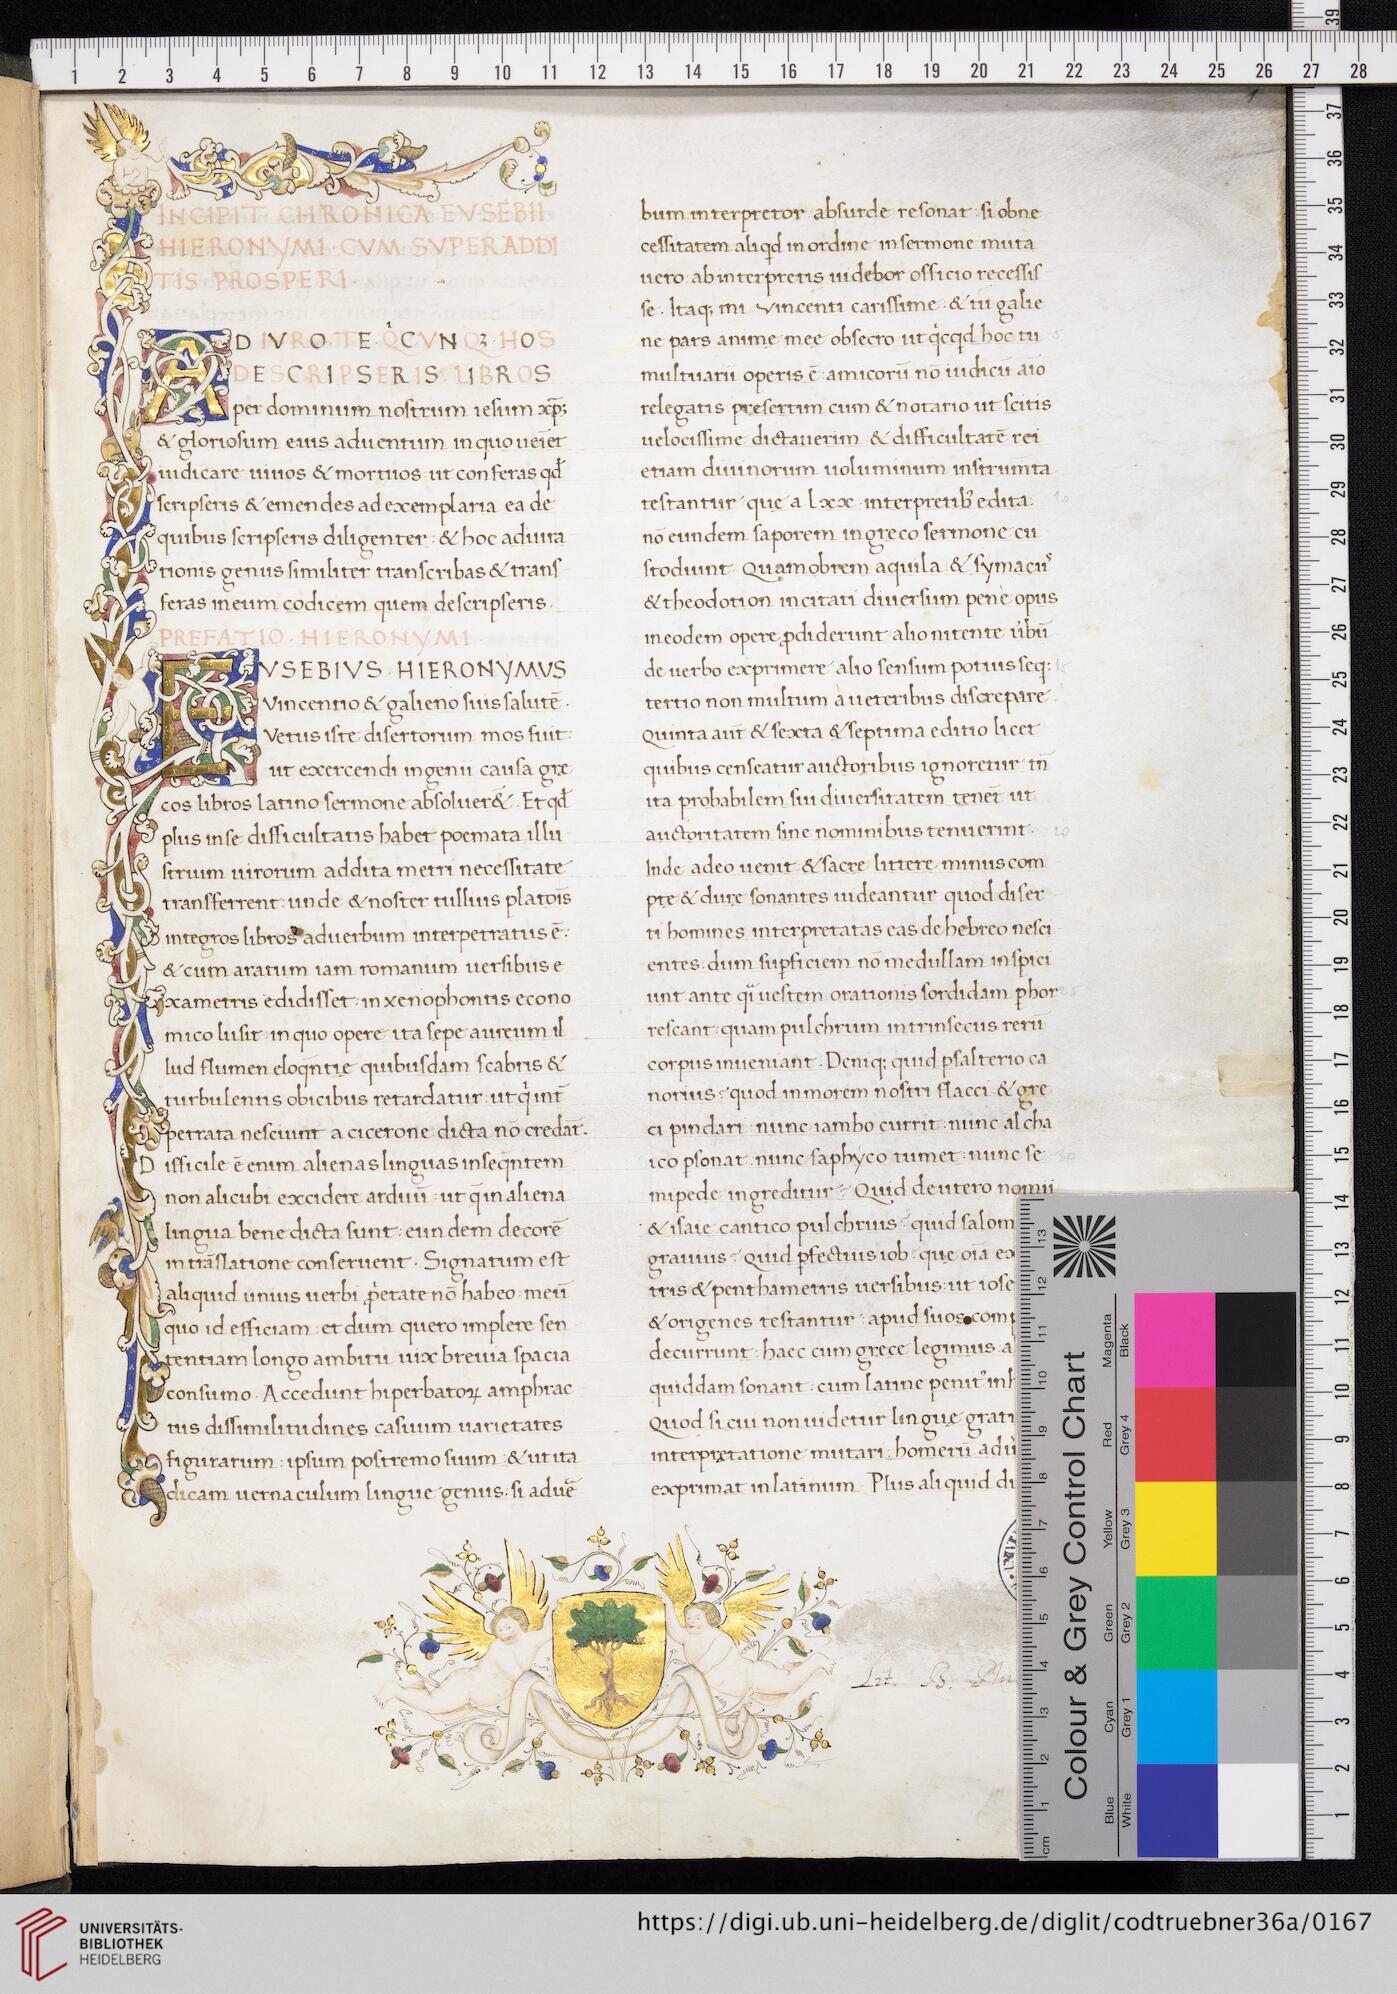 INCIPIT CHRONICA EVSEBII
HIERONYMI · CVM · SVPERADDI
TIS PROSPERI
ADIVRO TE · QCVNQ3 · HOS
DESCRIPSERIS · LIBROS
per dominum nostrum iesum xp̄ꝫ
& gloriosum eius aduentum in quo ueiet
iudicare uiuos & mortuos ut conferas qđ
scripseris & emendes ad exemplaria ea de
quibus scripseris diligenter : & hoc adiura
tionis genus similiter transcribas & trans
feras in eum codicem quem descripseris .
PREFATIO · HIERONYMI
EVSEBIVS · HIERONYMUS
Vincentio & galieno suis salutē .
Vetus iste disertorum mos fuit :
ut exercendi ingenii causa græ
cos libros latino sermone absoluer& . Et qđ
plus in se difficultatis habet poemata illu
strium uirorum addita metri necessitate
transferrent : unde & noster tullius platōis
integros libros ad uerbum interpetratus ē :
& cum aratum iam romanum uersibus e
xametris edidisset : in xenophontis econo
mico lusit · in quo opere ita sepe aureum il
lud flumen eloqntię quibusdam scabris &
turbulentis obicibus retardatur : ut q int̄
petrata nesciunt a cicerone dicta nō credāt .
Difficile ē enim alienas linguas inseqntem
non alicubi excidere arduū : ut q in aliena
lingua bene dicta sunt : eundem decorē
in trāslatione conseruent . Signatum est
aliquid unius uerbi p̄etate nō habeo · meū
quo id efficiam : et dum quero implere sen
tentiam longo ambitu uix breuia spacia
consumo . Accedunt hiperbatoꝝ amphrac
tus dissimilitudines casuum uarietates
figurarum : ipsum postremo suum : & ut ita
dicam uernaculum lingue genus · si aduē
bum interpretor absurde resonat : si obne
cessitatem aliqd in ordine in sermone muta
uero : ab interpretis uidebor officio recessis
se . Itaq; mi Vincenti carissime · & tu galie
ne pars anime mee obsecro ut qcqd hoc tu
multuarii operis ē amicorū nō iudicū aīo
relegatis presertim cum & notario ut scitis
uelocissime dictauerim & difficultatē rei
etiam diuinorum uoluminum instrumta
testantur que a lxx · interpretib edita
nō eundem saporem in greco sermone cu
stodiunt . Quamobrem aquila & symacus
& theodotion incitati diuersum pene opus
in eodem opere ꝓdiderunt alio nitente ubū
de uerbo exprimere alio sensum potius seq:
tertio non multum a ueteribus discrepare .
Quinta aūt & sexta & septima editio licet
quibus censeatur auctoribus ignoretur · in
ita probabilem sui diuersitatem tenet ut
auctoritatem sine nominibus tenuerint .
Inde adeo uenit & sacre littere minus com
pte & dure sonantes uideantur quod diser
ti homines interpretatas eas de hebreo nesci
entes : dum supficiem nō medullam inspici
unt ante q uestem orationis sordidam phor
rescant : quam pulchrum intrinsecus rerū
corpus inueniant . Deniq; quid psalterio ca
norius : quod in morem nostri flacci & gre
ci pindari nunc iambo currit · nunc alcha
ico psonat . nunc saphyco tumet : nunc se
mipede ingreditur : Quid deutero nomii
& isaie cantico pulchrius : quid salom
grauius : Quid pfectius iob : que oīa ex
tris & penthametris uersibus : ut iose
& origenes testantur : apud suos com
decurrunt : haec cum grece legimus a
quiddam sonant : cum latine penit inh
Quod si cui non uidetur lingue grati
interpretatione mutari : homerū adu
exprimat in latinum . Plus aliquid di
Lit. B.
1 2 3 4 5 6 7 8 9 10 11 12 13 14 15 16 17 18 19 20 21 22 23 24 25 26 27 28
39
37
36
35
34
33
32
31
30
29
28
27
26
25
24
23
22
21
20
19
18
17
16
15
14
13
12
11
10
9
8
7
6
5
4
3
2
1
Colour & Grey Control Chart
Magenta
Black
Red
Grey 4
Yellow
Grey 3
Green
Grey 2
Cyan
Grey 1
Blue
White
13
12
11
10
9
8
7
6
5
4
3
2
1
cm
UNIVERSITÄTS-
BIBLIOTHEK
HEIDELBERG
https://digi.ub.uni-heidelberg.de/diglit/codtruebner36a/0167